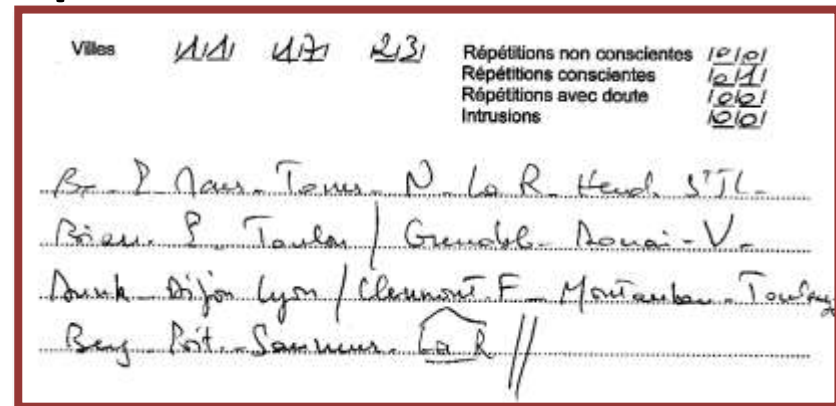 Villes 11 17 23 Répétitions non conscientes 00
Répétitions conscientes 01
Répétitions avec doute 00
Intrusions 00
Br - P - Mars - Tours - N - La R - Hend. St JL -
Toulon / Grenobl - Douai - V -
Dunk - Dijon Lyon / Clermont. F - Montauban - Toulouse
Berg - Poit. - Saumur - La R //